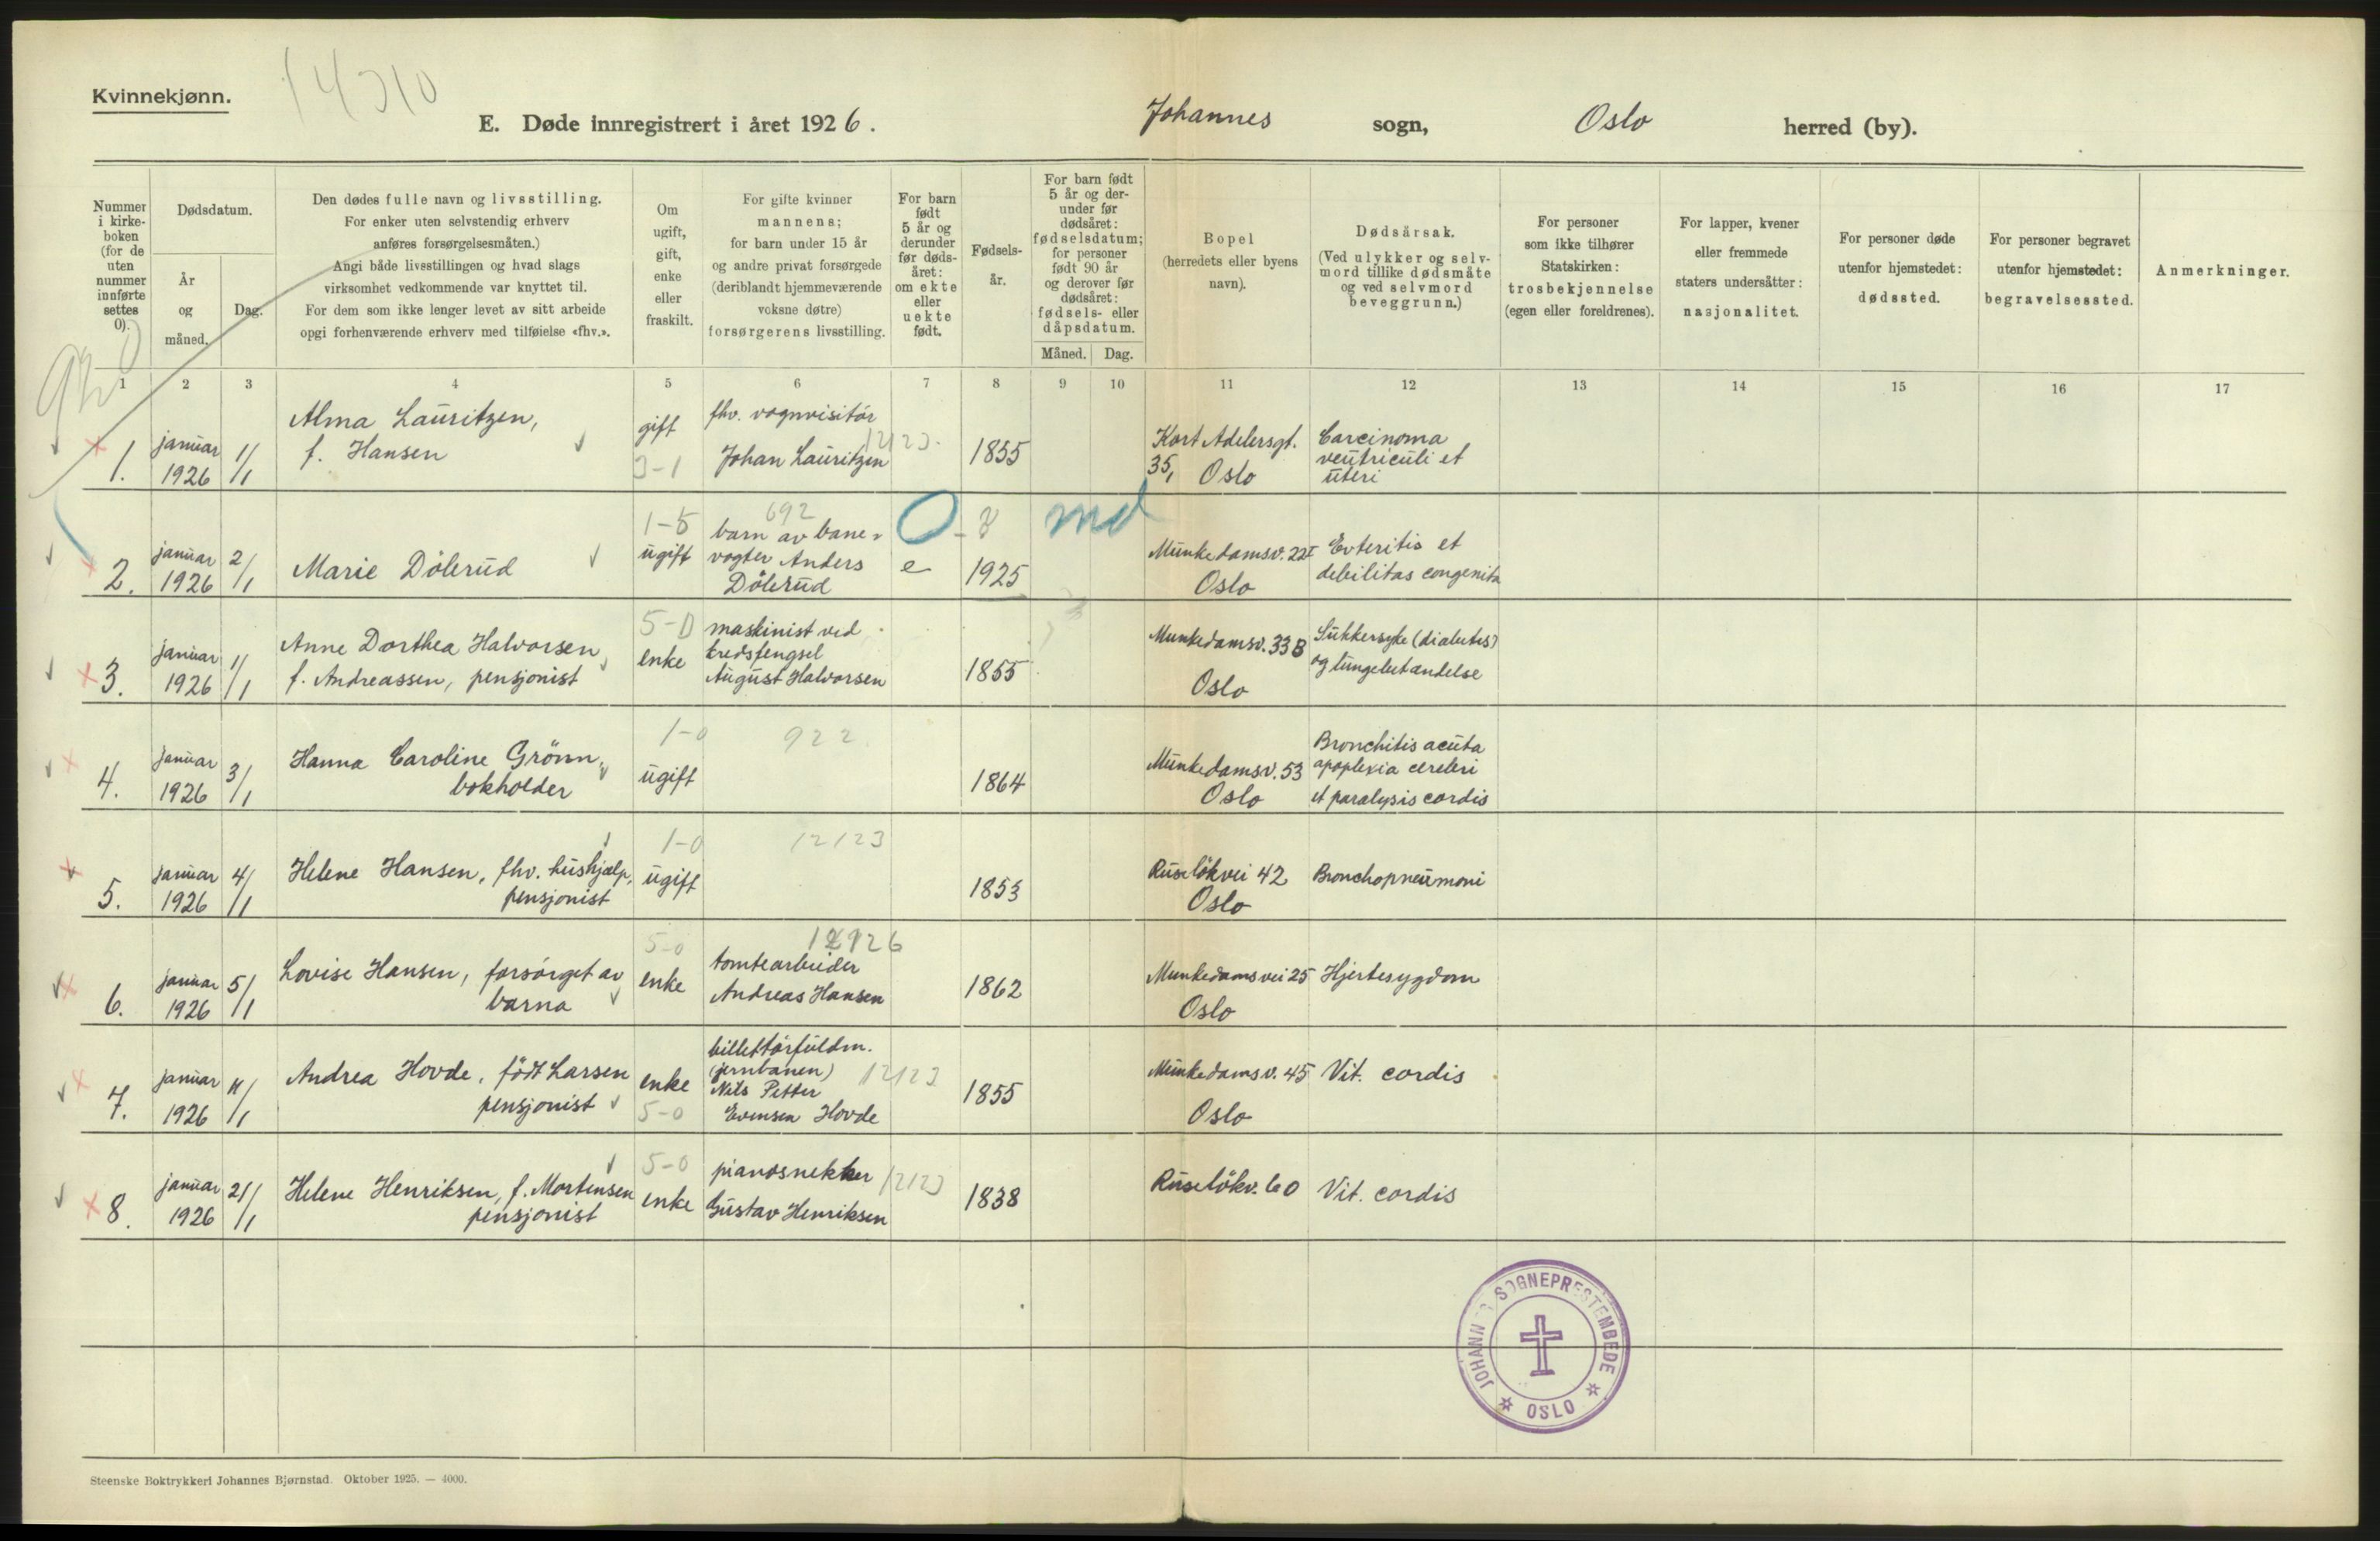 Kvinnekjønn.
14310
E. Døde innregistrert i året 1926. Johannes sogn, Oslo herred (by).
Nummer i kirkeboken (for de uten nummer innførte settes 0).
Dødsdatum.
År og måned.
Dag.
Den dødes fulle navn og livsstilling.
For enker uten selvstendig erhverv
anføres forsørgelsesmåten.)
Angi både livsstillingen og hvad slags
virksomhet vedkommende var knyttet til.
For dem som ikke lenger levet av sitt arbeide
opgi forhenværende erhverv med tilføielse «fhv.».
Om
ugift,
gift,
enke
eller
fraskilt.
For gifte kvinner
mannens;
for barn under 15 år
og andre privat forsørgede
(deriblandt hjemmeværende
voksne døtre)
forsørgerens livsstilling.
For barn
født
5 år og
derunder
før døds-
året:
om ekte
eller
uekte
født.
Fødsels-
år.
For barn født
5 år og der-
under før
dødsåret:
fødselsdatum;
for personer
født 90 år
og derover før
dødsåret:
fødsels- eller
dåpsdatum.
Måned. Dag.
Bopel
(herredets eller byens
navn).
Dødsårsak.
(Ved ulykker og selv-
mord tillike dødsmåte
og ved selvmord
beveggrunn.)
For personer
som ikke tilhører
Statskirken:
trosbekjennelse
(egen eller foreldrenes).
For lapper, kvener
eller fremmede
staters undersåtter:
nasjonalitet.
For personer døde
utenfor hjemstedet:
dødssted.
For personer begravet
utenfor hjemstedet:
begravelsessted.
Anmerkninger.
1 2 3 4 5 6 7 8 9 10 11 12 13 14 15 16 17
1. januar 1926 1/1
Alma Lauritzen,
f. Hansen
gift
3-1
fhv. vognvisitör
12123
Johan Lauritzen
1855
Kort Adelersgt.
35, Oslo
Carcinoma
ventriculi et
uteri
2. januar 1926 2/1
Marie Dölerud
1-5
ugift
692
barn av bane-
vogter Anders
Dölerud
e
0 - 8 md
1925
Munkedamsv. 22I
Oslo
Enteritis et
debilitas congenita
3. januar 1926 1/1
Anne Dorthea Halvorsen,
f. Andreassen, pensjonist
5-0
enke
maskinist ved
kredsfengsel
August Halvorsen
1855
Munkedamsv. 33B
Oslo
Sukkersyke (diabetes)
og lungebetændelse
4. januar 1926 3/1
Hanna Caroline Grönn,
bokholder
1-0
ugift
922
1864
Munkedamsv. 53
Oslo
Bronchitis acuta
apoplexia cerebri
et paralysis cordis
5. januar 1926 4/1
Helene Hansen, fhv. hushjælp,
pensjonist
1-0
ugift
12123
1853
Ruselökvei 42
Oslo
Bronchopneumoni
6. januar 1926 5/1
Lovise Hansen, forsörget av
barna
5-0
enke
12926
tomtearbeider
Andreas Hansen
1862
Munkedamsvei 25
Oslo
Hjertesygdom
7. januar 1926 11/1
Andrea Hovde, född Larsen
pensjonist
enke
5-0
billettörfuldm.
(jernbanen)
12123
Nils Petter
Evensen Hovde
1855
Munkedamsv. 45
Oslo
Vit. cordis
8. januar 1926 21/1
Helene Henriksen, f. Mortensen
pensjonist
5-0
enke
pianosnekker
12123
Gustav Henriksen
1838
Ruselökv. 60
Vit. cordis
JOHANNES SOGNEPRESTEMBEDE
OSLO
Steenske Boktrykkeri Johannes Bjørnstad. Oktober 1925. — 4000.